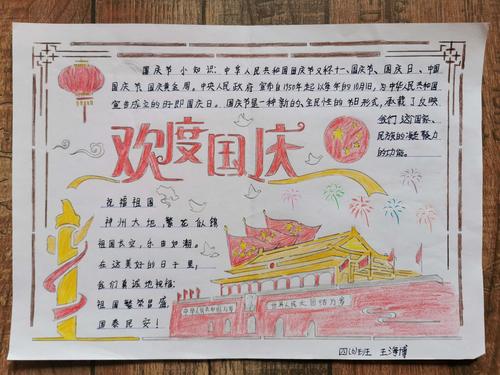 国庆节小知识：中华人民共和国国庆节又称十一、国庆节、国庆日、中国
国庆节、国庆黄金周。中央人民政府宣布自1950年起以每年的10月1日，为中华人民共和国
宣告成立的日子即国庆日。国庆节是一种新的、全民性的节日形式，承载了反映
我们这个国家、
民族的凝聚力
的功能。
欢度国庆
祝福祖国
神州大地，繁花似锦
祖国长空，乐曲如潮，
在这美好的日子里，
我们真诚地祝福：
祖国繁荣昌盛，
国泰民安！
中华人民共和国万岁
世界人民大团结万岁
四(6)班
王海博